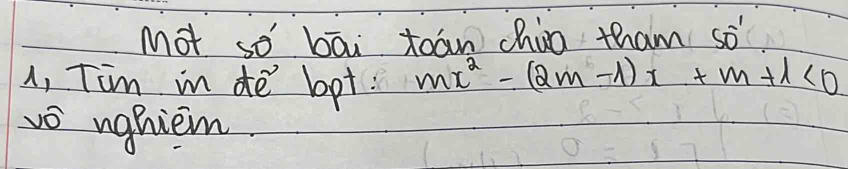 Một số bài toán chứa tham số
1, Tìm m để bpt: mx² - (2m-1)x + m+1<0
vô nghiệm.